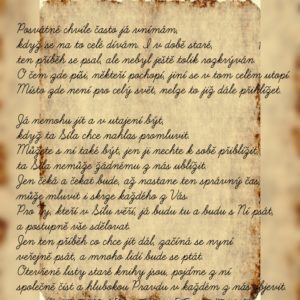 Posvátné chvíle často já vnímám,
když se na to celé dívám. I v době staré,
ten příběh se psal, ale nebyl ještě tolik rozkrýván.
O čem zde píši, někteří pochopí, jiní se v tom celém utopí.
Místo zde není pro celý svět, nelze to již dále přibližet.
Já nemohu jít a v utajení být,
když ta Síla chce nahlas promluvit.
Můžete s ní také být, jen ji nechte k sobě přiblížit,
ta Síla nemůže žádnému z nás ublížit.
Jen čeká a čekat bude, až nastane ten správný čas,
může mluvit i skrze každého z Vás.
Pro ty, kteří v Sílu věří, já budu tu a budu s Ní psát,
a postupně vše sdělovat.
Jen ten příběh co chce jít dál, začíná se nyní
veřejně psát, a mnoho lidí bude se ptát.
Otevřené listy staré knihy jsou, pojdme z ní
společně číst a hlubokou Pravdu v každém z nás objevit.